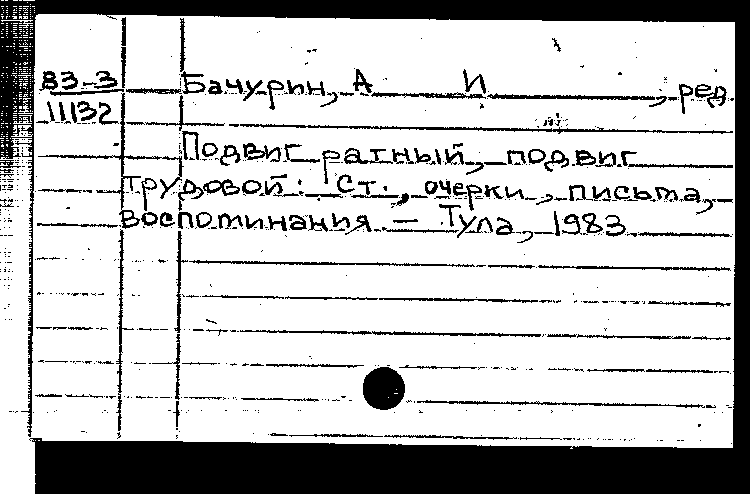 83-3 Бачурин, А И , ред
11132
Подвиг ратный, подвиг
трудовой: Ст., очерки, письма,
воспоминания. — Тула, 1983